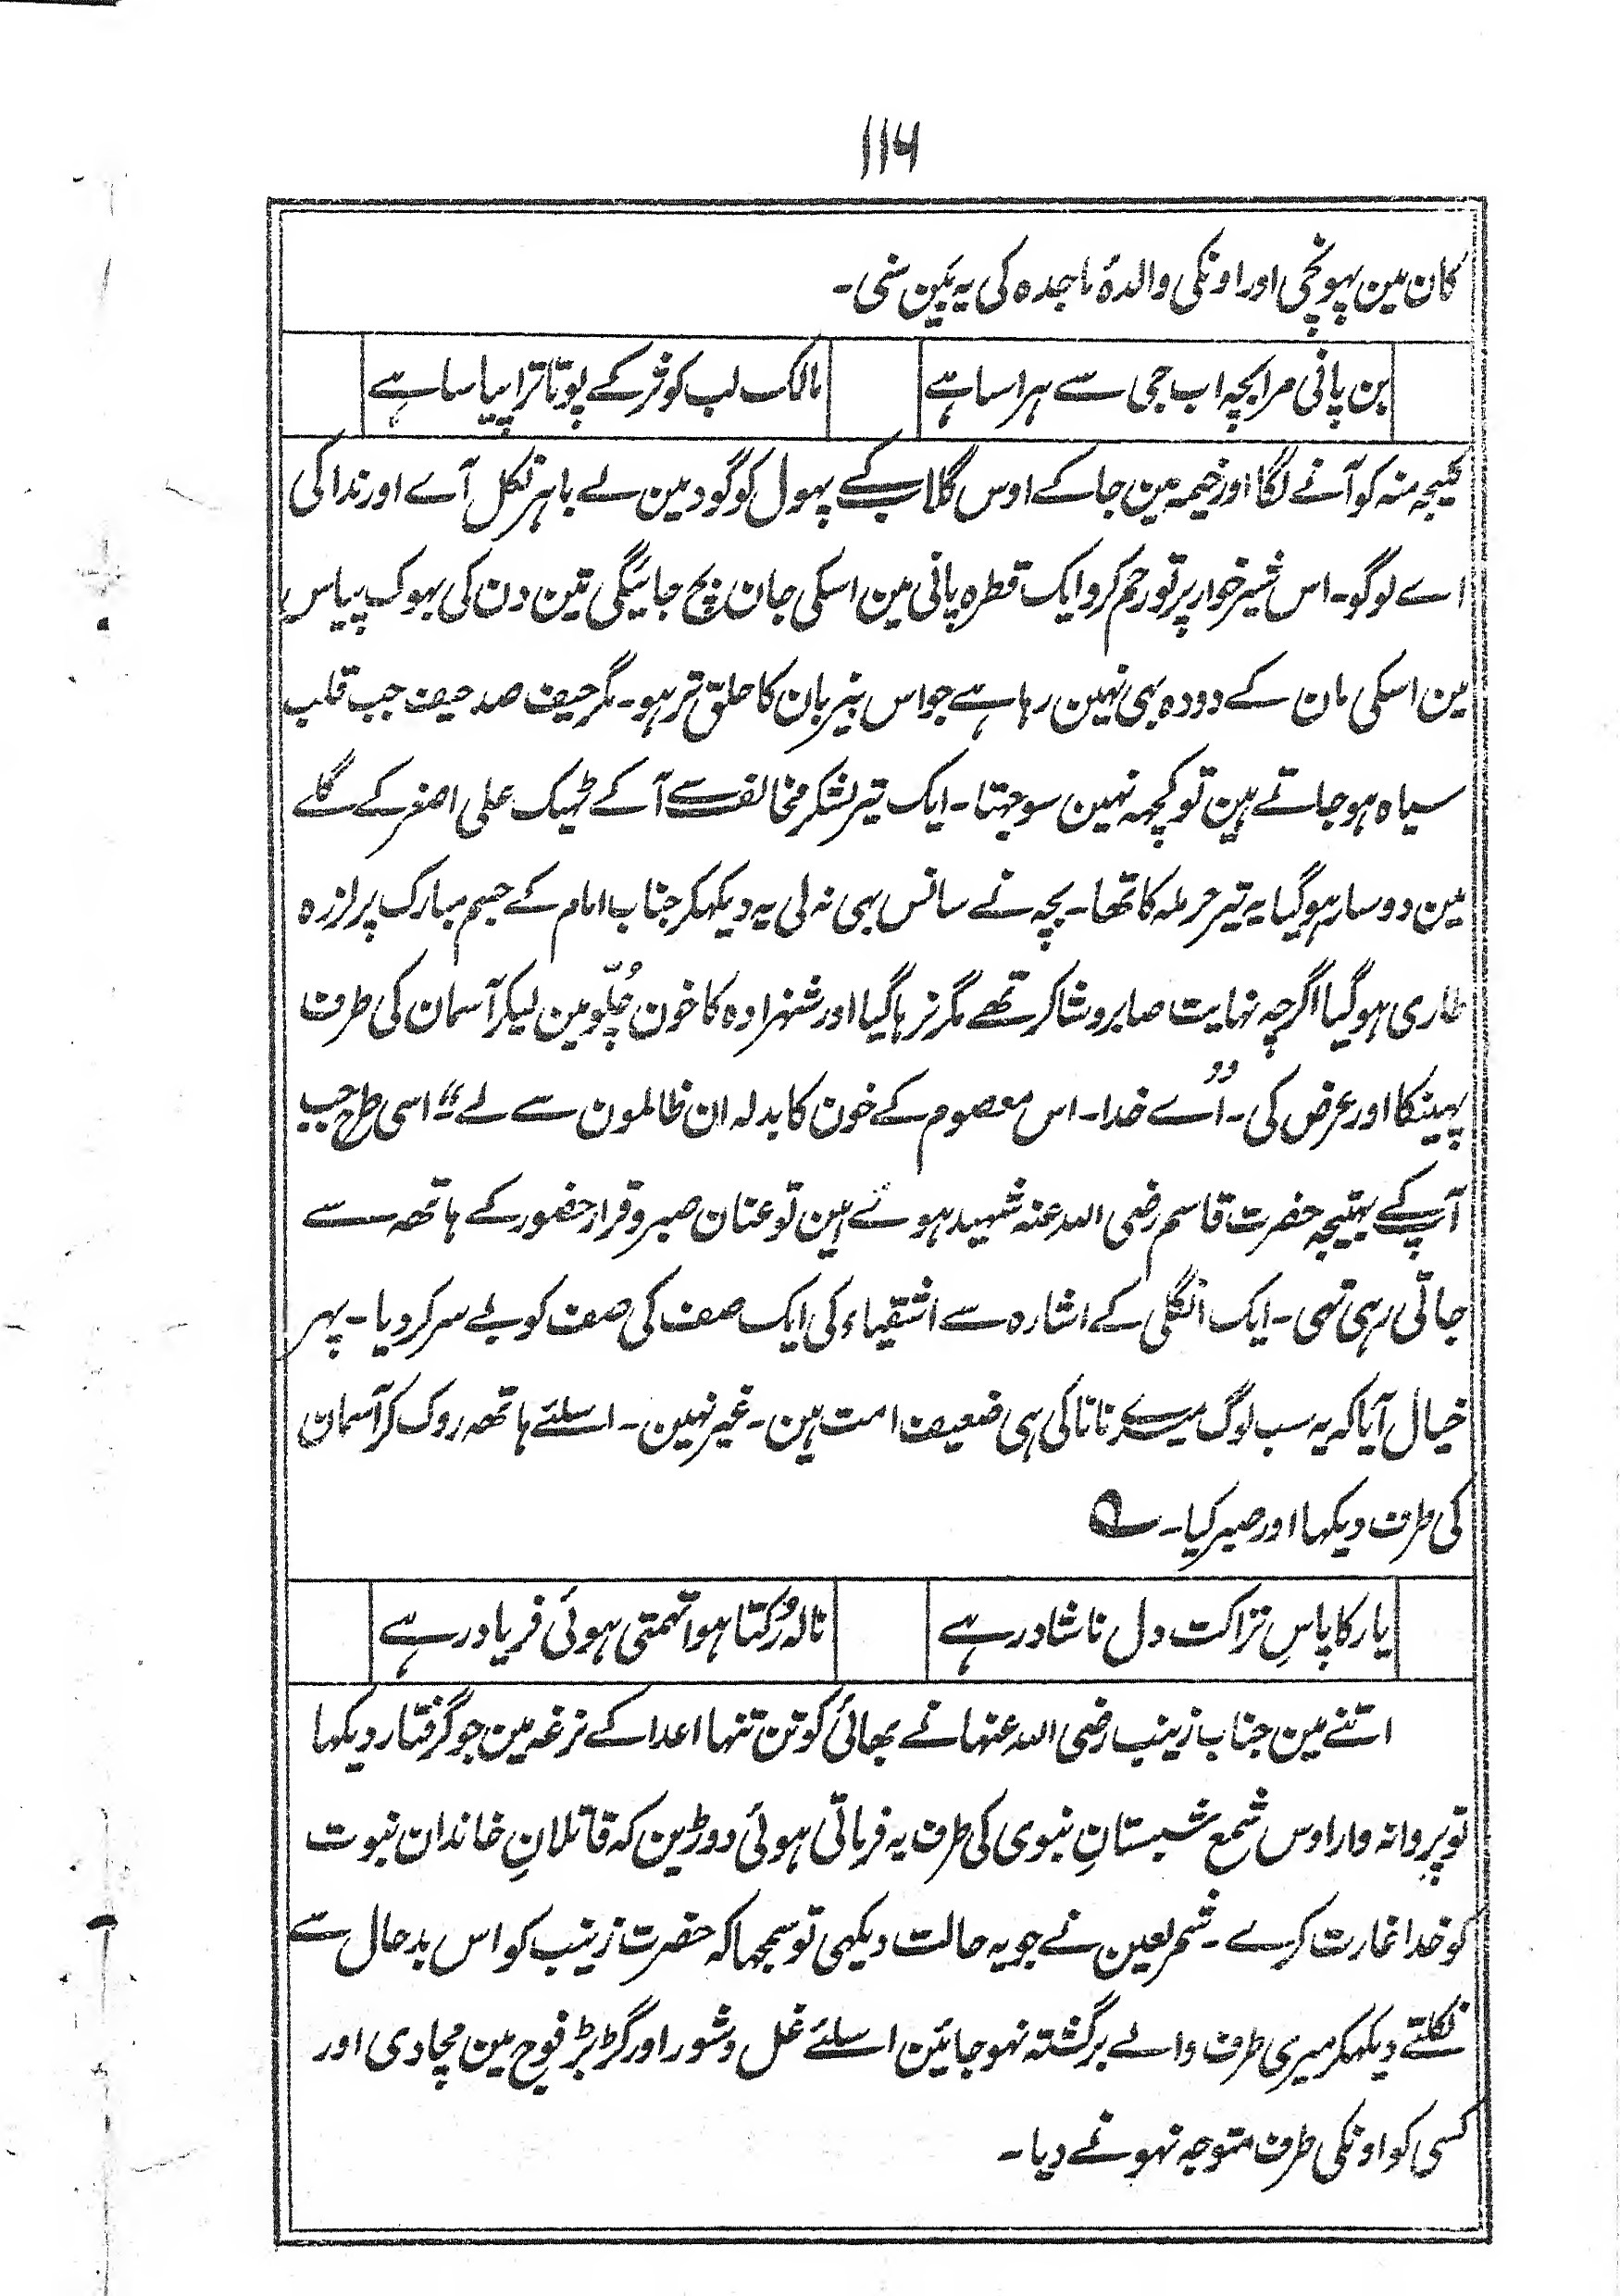 ۱۱۶
کان مین پہونچی اور اونکی والدۂ ماجدہ کی یہ بَین سنی۔
بن پانی مرا بچہ اب جی سے ہراسا ہے
مالک لب کوثر کے پوتا ترا پیاسا ہے
کلیجہ منہ کو آنے لگا اور خیمہ مین جا کے اوس گلاب کے پھول کو گود مین لے باہر نکل آے اور ندا کی
اے لوگو۔ اس شیرخوار پر تو رحم کرو ایک قطرہ پانی مین اسکی جان بچ جائیگی تین دن کی بہوک پیاس
مین اسکی مان کے دودہ بہی نہین رہا ہے جو اس بیزبان کا حلق تر ہو۔ مگر حیف صد حیف جب قلب
سیاہ ہو جاتے ہین تو کچہہ نہین سوجہتا۔ ایک تیر لشکر مخالف سے آ کے ٹہیک علی اصغر کے گلے
مین دوسار ہو گیا یہ تیر حرملہ کا تھا۔ بچہ نے سانس بہی نہ لی یہ دیکہکر جناب امام کے جسم مبارک پر لرزہ
طاری ہو گیا اگرچہ نہایت صابر و شاکر تھے مگر نرہا گیا اور شہزادہ کا خون چُلّو مین لیکر آسمان کی طرف
پہینکا اور عرض کی۔ ”اے خدا۔ اس معصوم کے خون کا بدلہ ان ظالمون سے لے“۔ اسی طرح جب
آپ کے بہتیجہ حضرت قاسم رضی اللہ عنہ شہید ہوئے ہین تو عنان صبر و قرار حضور کے ہاتھہ سے
جاتی رہی تہی۔ ایک انگلی کے اشارہ سے اشقیاء کی ایک صف کی صف کو بے سر کر دیا۔ پہر
خیال آیا کہ یہ سب لوگ میرے نانا کی ہی ضعیف امت ہین۔ غیر نہین۔ اسلئے ہاتھہ روک کر آسمان
کی طرف دیکہا اور صبر کیا۔ ؎
یار کا پاسِ نزاکت دل ناشاد رہے
نالہ رُکتا ہوا تہمتی ہوئی فریاد رہے
اتنے مین جناب زینب رضی اللہ عنہا نے بھائی کو تن تنہا اعدا کے نرغہ مین جو گرفتار دیکہا
تو پروانہ وار اوس شمع شبستانِ نبوی کی طرف یہ فرماتی ہوئی دوڑین کہ قاتلانِ خاندان نبوت
کو خدا غارت کرے۔ شمر لعین نے جو یہ حالت دیکہی تو سمجہا کہ حضرت زینب کو اس بدحال سے
نکلتے دیکہکر میری طرف والے برگشتہ نہو جائین اسلئے غل و شور اور گڑبڑ فوج مین مچا دی اور
کسی کو اونکی طرف متوجہ نہونے دیا۔